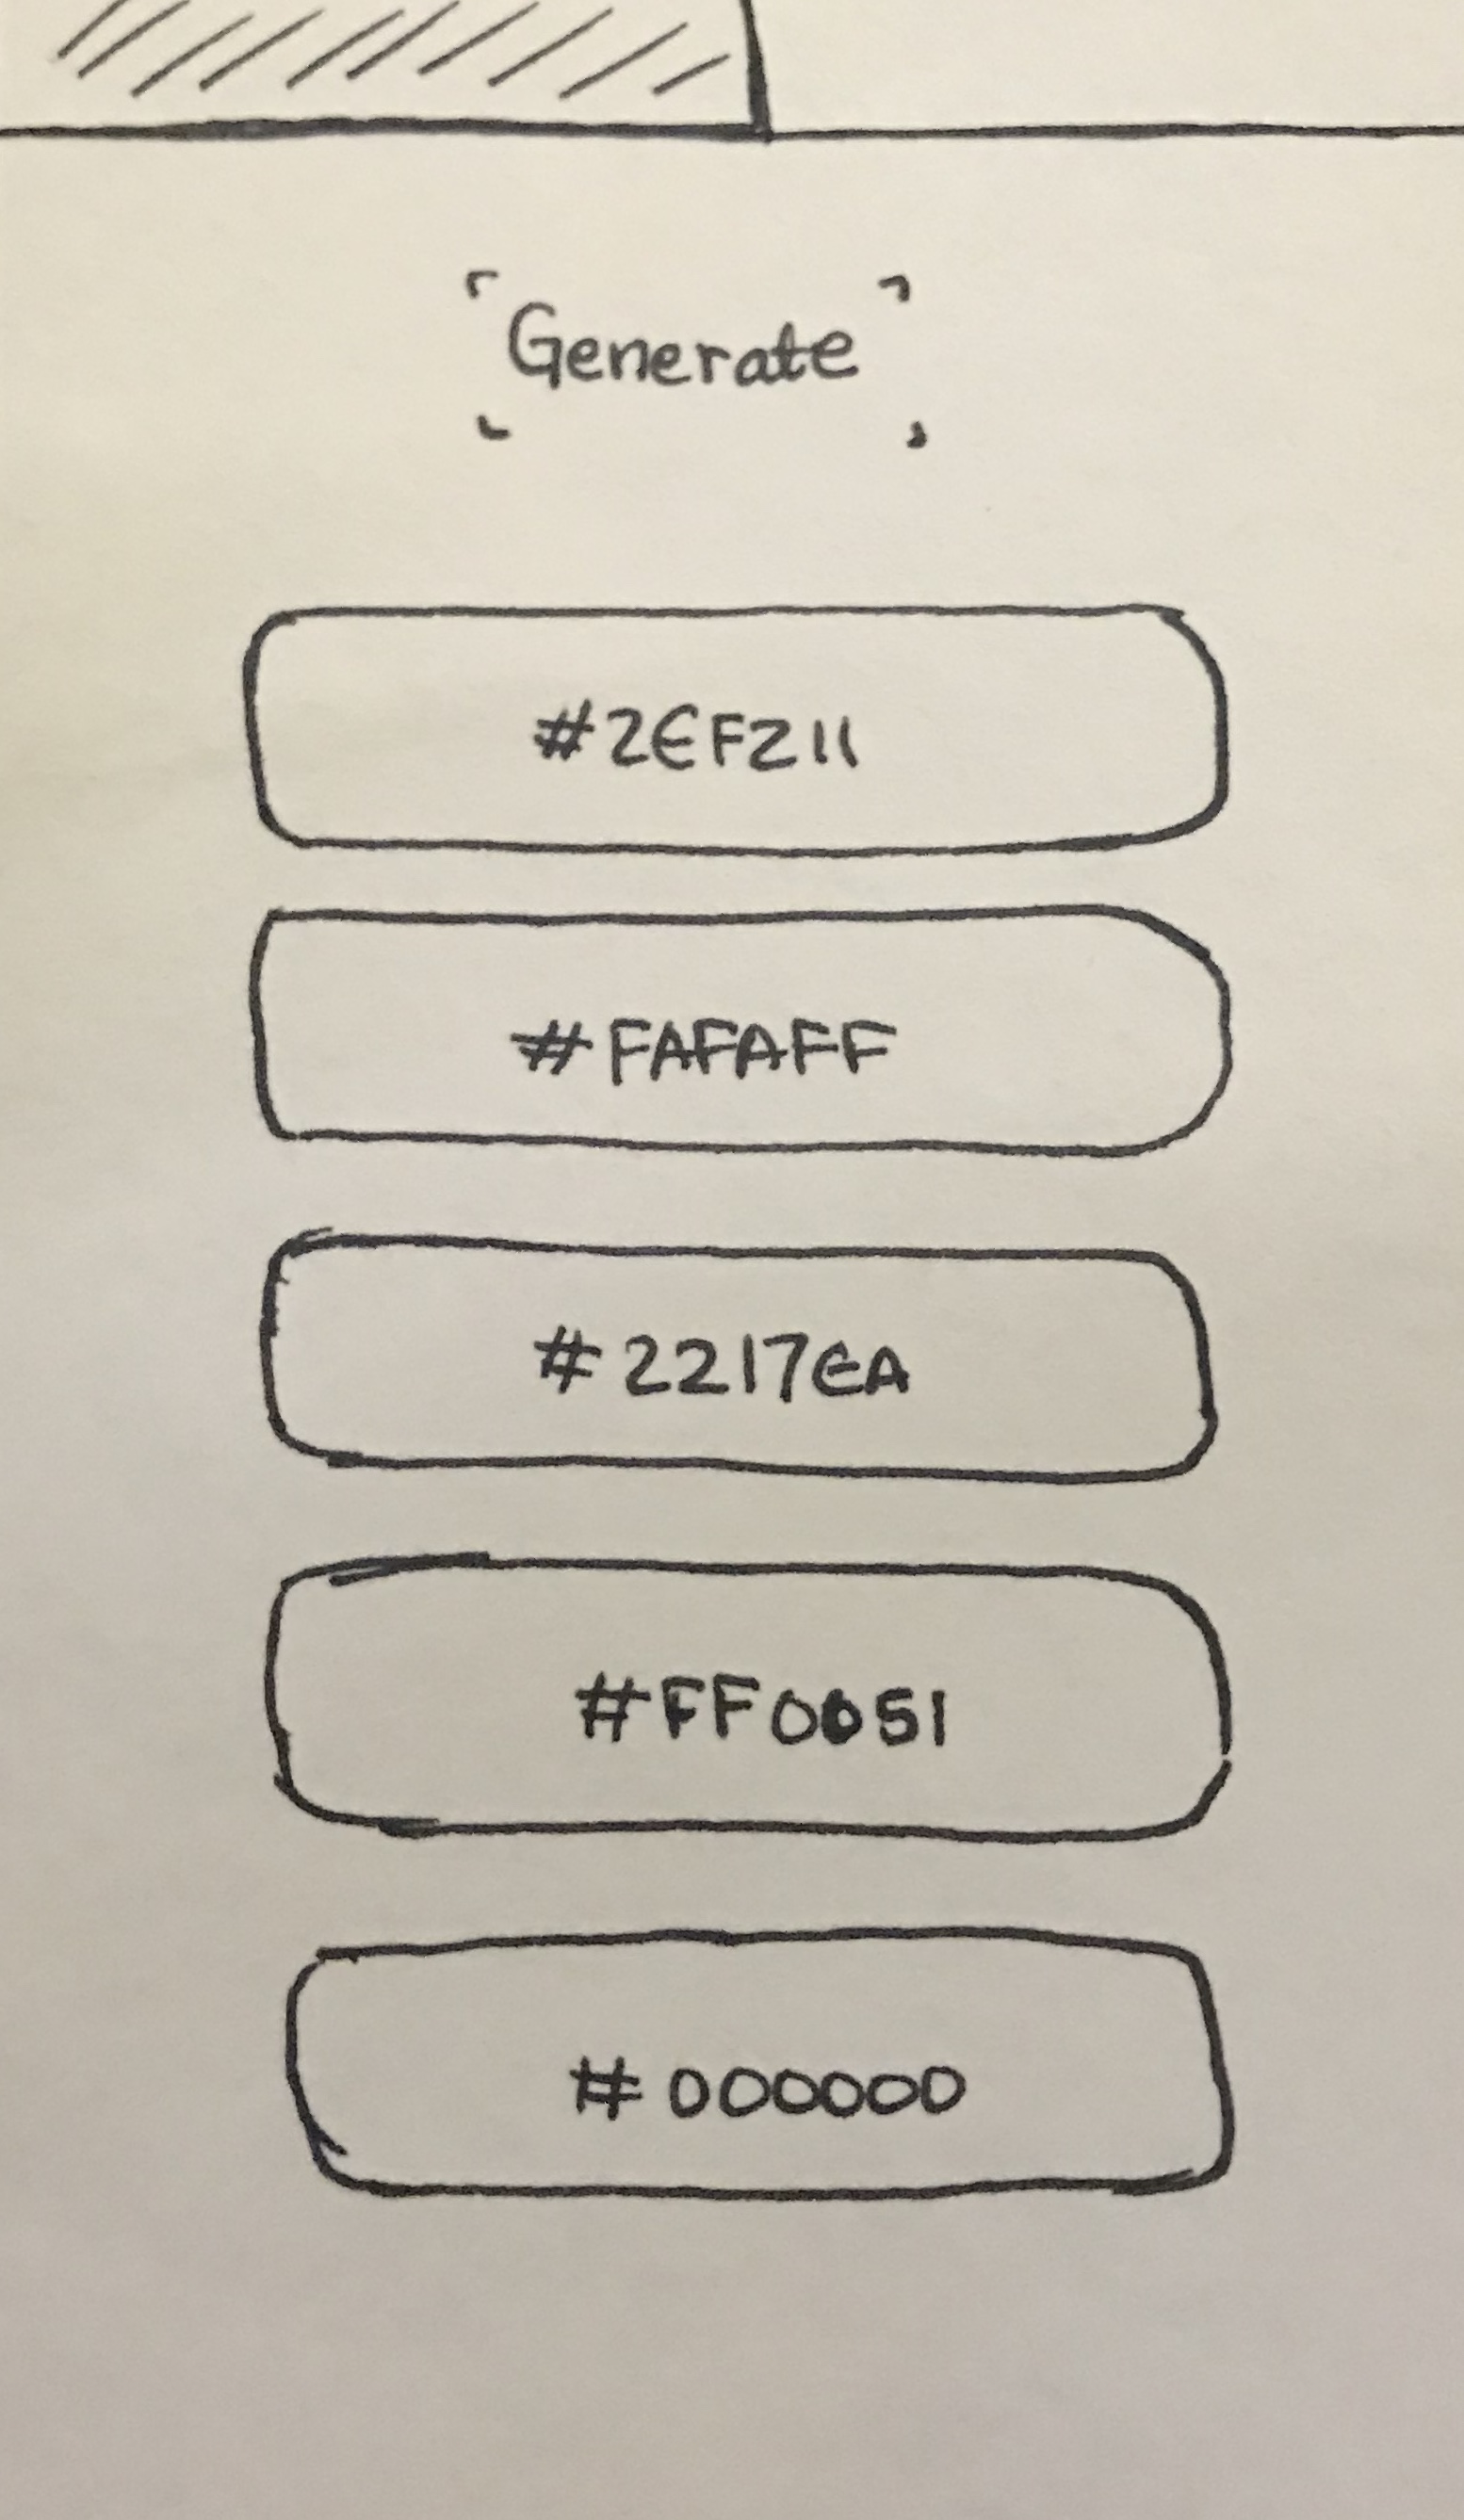 Generate
#2EF211
#FAFAFF
#2217EA
#FF0051
#000000